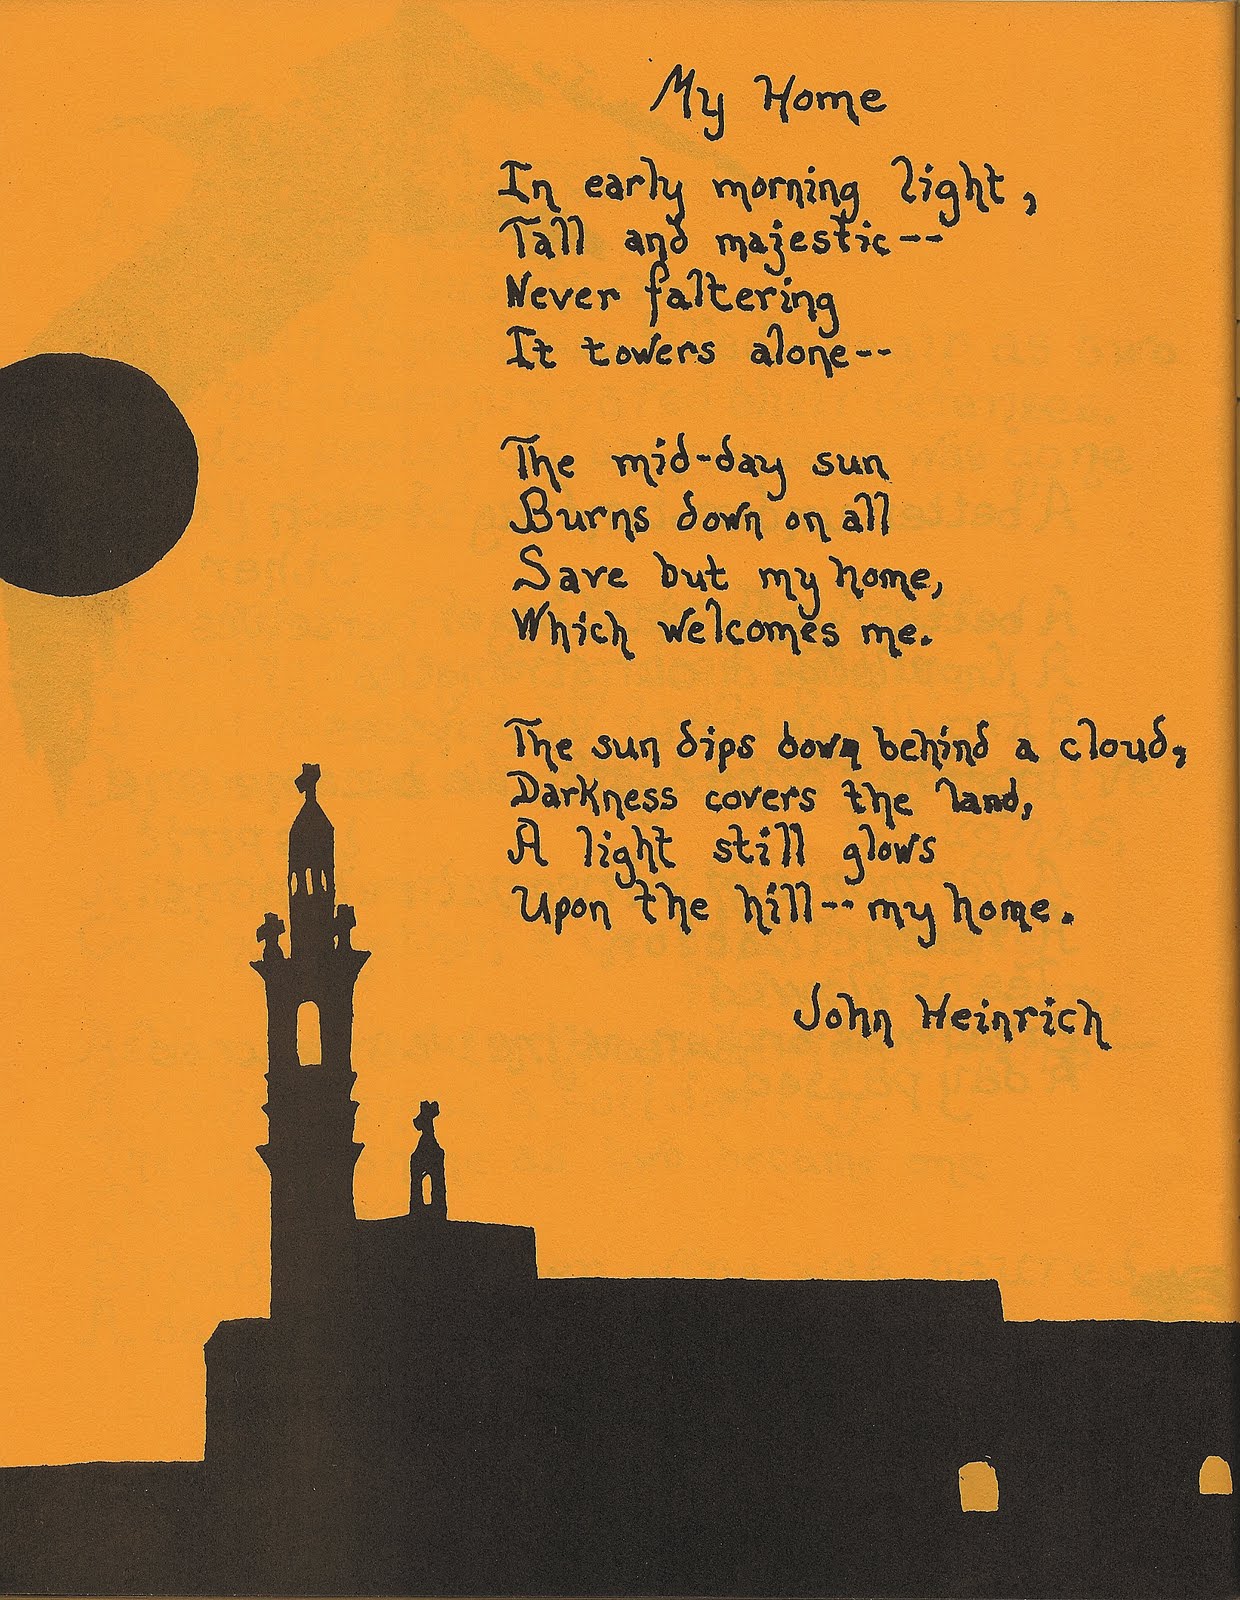 My Home
In early morning light,
Tall and majestic--
Never faltering
It towers alone--
The mid-day sun
Burns down on all
Save but my home,
Which welcomes me.
The sun dips down behind a cloud,
Darkness covers the land,
A light still glows
Upon the hill--my home.
John Heinrich